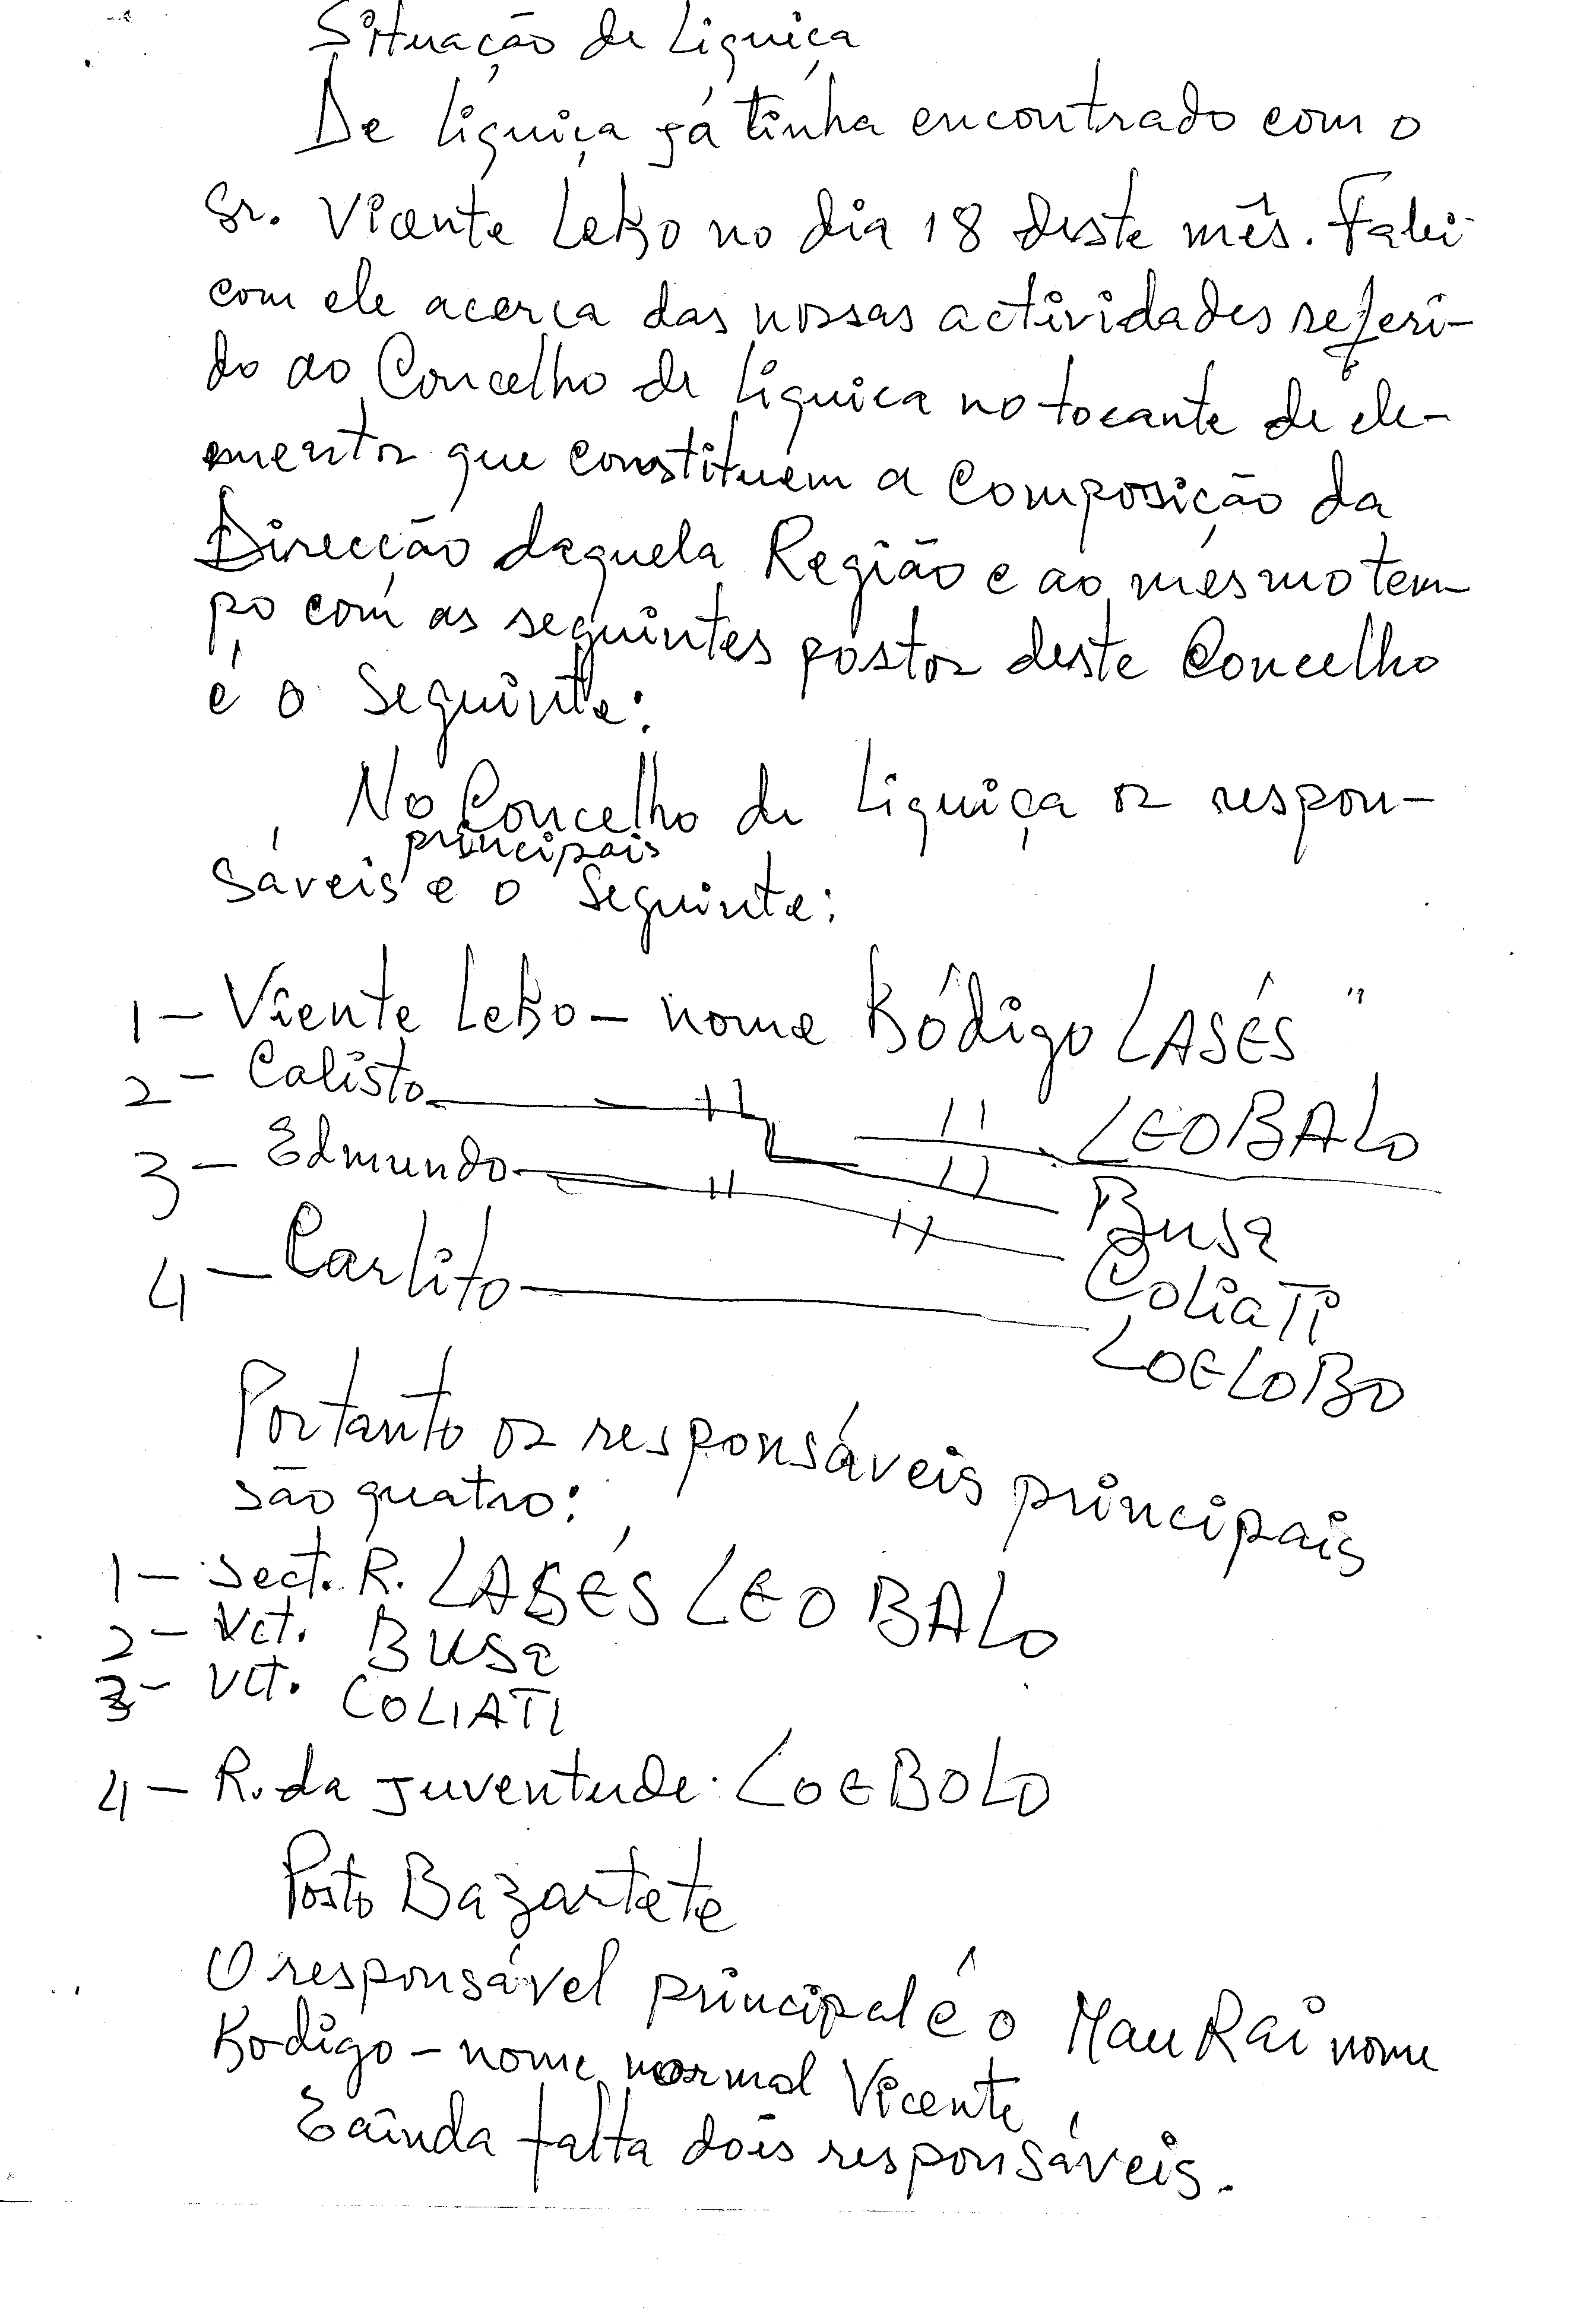 Situação de Liquiça
De liquiça já tinha encontrado com o
Sr. Vicente LeKo no dia 18 deste mês. Falei
com ele acerca das nossas actividades referi-
do ao Concelho de liquica no tocante de ele-
mentos que constituem a Composição da
Direcção daquela Região e ao mesmo tem-
po com as seguintes postos deste Concelho
é o Seguinte:
No Concelho de Liquiça os respon-
principais
sáveis é o Seguinte:
1 - Viente LeKo - nome Kódigo LASÉS "
LEOBALO
2 - Calisto — " — " — Busa
3 - Edmundo — " — " — Coliati
4 - Carlito — LOELOBO
Portanto os responsáveis principais
são quatro:
1 - Sect. R. LASÉS LEOBALO
2 - Vct. BUSA
3 - Vct. COLIATI
4 - R. da Juventude. LOEBOLO
Posto Bazartete
O responsável principal é o Mau Rai nome
Kodigo - nome normal Vicente
E ainda falta dois responsáveis.